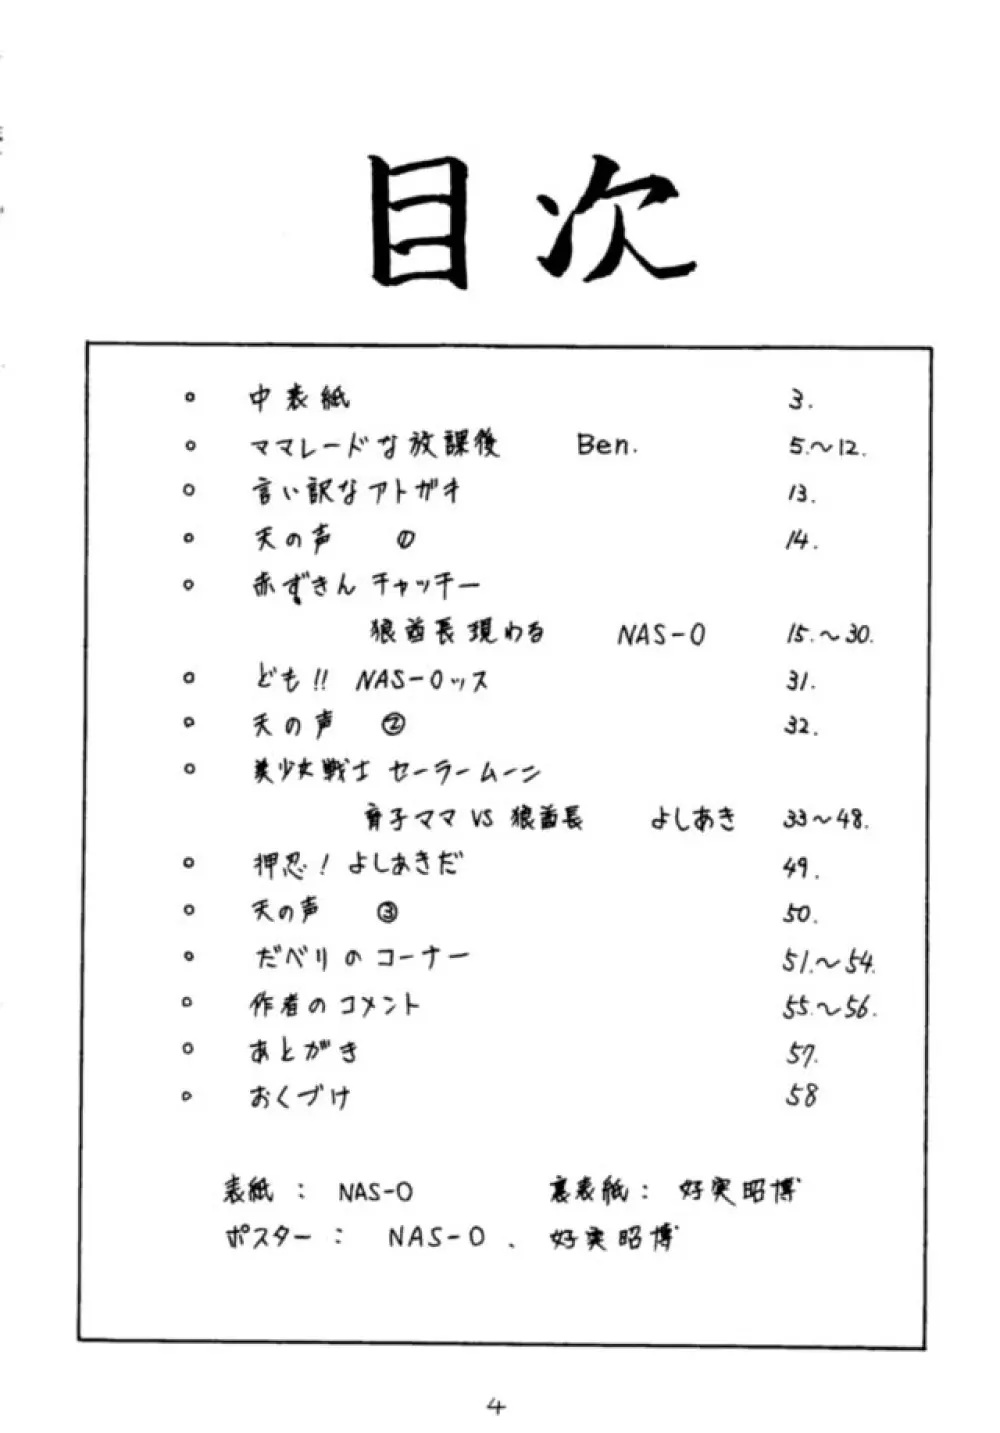 目次
中表紙 3.
ママレードな放課後 Ben. 5.～12.
言い訳なアトガキ 13.
天の声 ① 14.
赤ずきんチャッチー
狼酋長現わる NAS-O 15.～30.
ども!! NAS-Oッス 31.
天の声 ② 32.
美少女戦士 セーラームーン
育子ママ VS 狼酋長 よしあき 33～48.
押忍! よしあきだ 49.
天の声 ③ 50.
だべりのコーナー 51.～54.
作者のコメント 55.～56.
あとがき 57.
おくづけ 58
表紙: NAS-O 裏表紙: 好実昭博
ポスター: NAS-O. 好実昭博
4